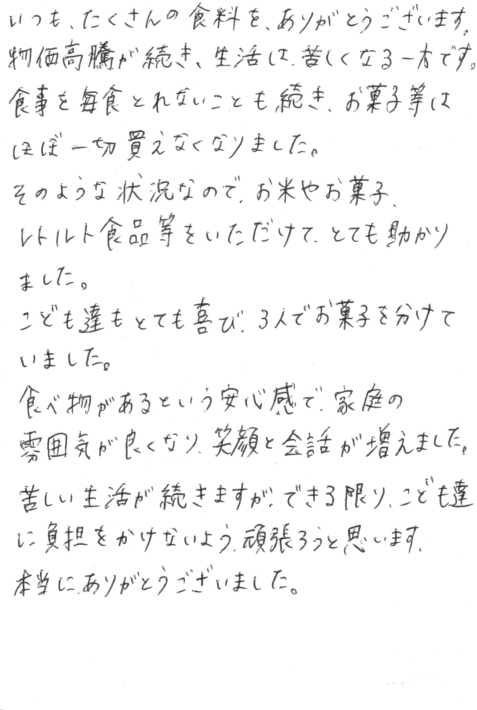 いつも、たくさんの食料を、ありがとうございます。
物価高騰が続き、生活は、苦しくなる一方です。
食事を毎食とれないことも続き、お菓子等は
ほぼ一切買えなくなりました。
そのような状況なので、お米やお菓子、
レトルト食品等をいただけて、とても助かり
ました。
こども達もとても喜び、3人でお菓子を分けて
いました。
食べ物があるという安心感で、家庭の
雰囲気が良くなり、笑顔と会話が増えました。
苦しい生活が続きますが、できる限り、こども達
に負担をかけないよう、頑張ろうと思います。
本当に、ありがとうございました。